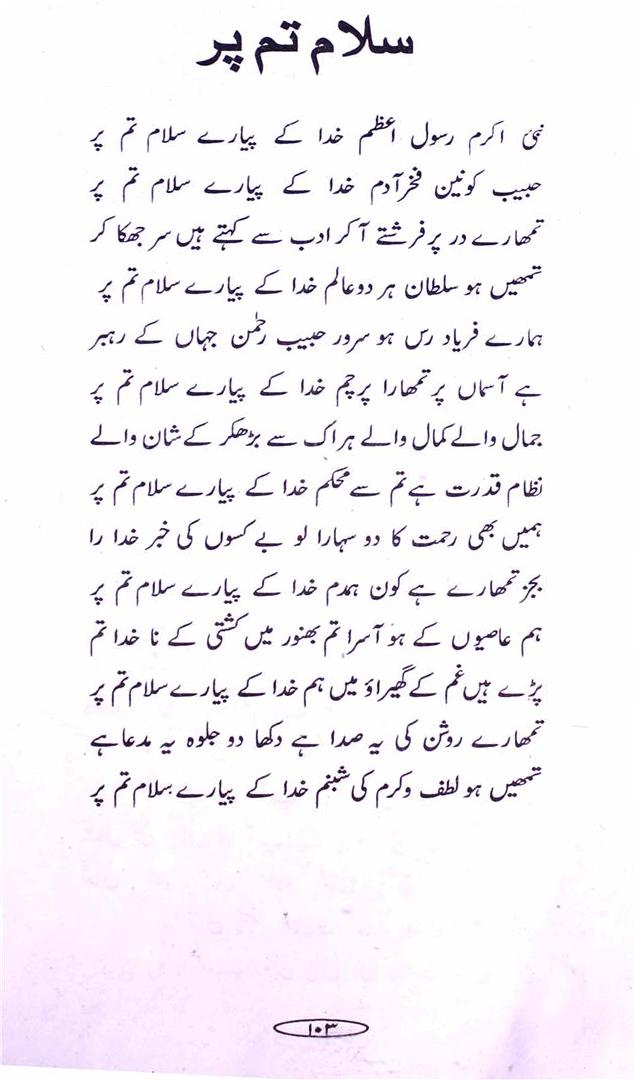 سلام تم پر
نبیٔ اکرم رسول اعظم خدا کے پیارے سلام تم پر
حبیب کونین فخر آدم خدا کے پیارے سلام تم پر
تمھارے در پر فرشتے آ کر ادب سے کہتے ہیں سر جھکا کر
تمھیں ہو سلطان ہر دو عالم خدا کے پیارے سلام تم پر
ہمارے فریاد رس ہو سرور حبیب رحمٰن جہاں کے رہبر
ہے آسماں پر تمھارا پرچم خدا کے پیارے سلام تم پر
جمال والے کمال والے ہر اک سے بڑھکر کے شان والے
نظام قدرت ہے تم سے محکم خدا کے پیارے سلام تم پر
ہمیں بھی رحمت کا دو سہارا لو بے کسوں کی خبر خدا را
بجز تمھارے ہے کون ہمدم خدا کے پیارے سلام تم پر
ہم عاصیوں کے ہو آسرا تم بھنور میں کشتی کے نا خدا تم
پڑے ہیں غم کے گھیراؤ میں ہم خدا کے پیارے سلام تم پر
تمھارے روشن کی یہ صدا ہے دکھا دو جلوہ یہ مدعا ہے
تمھیں ہو لطف و کرم کی شبنم خدا کے پیارے سلام تم پر
۱۰۳